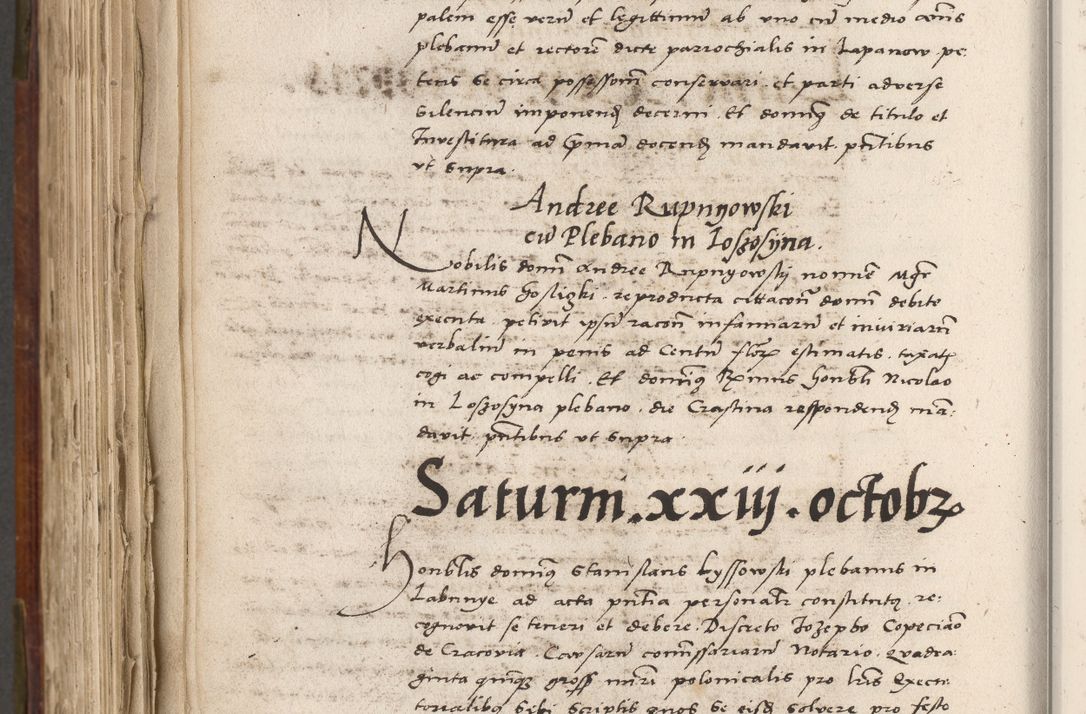 palem esse verum et legittimum ab uno cum medio annis
plebanum et rectorem dicte parrochialis in Lapanow pe:
tens se circa possessom conservari et parti adverse
silencium imponendum decerni. Et dominus de titulo et
Investitura ad primam docendum mandavit. pntibus
ut supra.
Andree Rupnyowski
cum Plebano in Loszosyna.
Nobilis domini Andree Rupnyowskj nomine Mgr
Martinus Gosliczki. reproducta citacom domini debito
executa. petivit ipsum racom infamiarum et iniuriarum
verbalium in penis ad Centum flor estimatis. taxatis
cogi ac compelli. Et dominus Rmus honbli Nicolao
in Loszosyna plebano. die Crastina respondendum man:
davit. pntibus ut supra.
Saturni .xxiij. octobr
Honblis dominus Stanislaus Lyssowski plebanus in
Labunye ad acta pntia personaliter constitutus. re:
cognovit se teneri et debere. Discreto Jozepho Copeciao
de Cracovia. Causarum commissariarum Notario. Quadra
ginta quinque gross nri polonicalis pro lris Execu
torialibus sibi scriptis quos se eisdem solvere pro festo